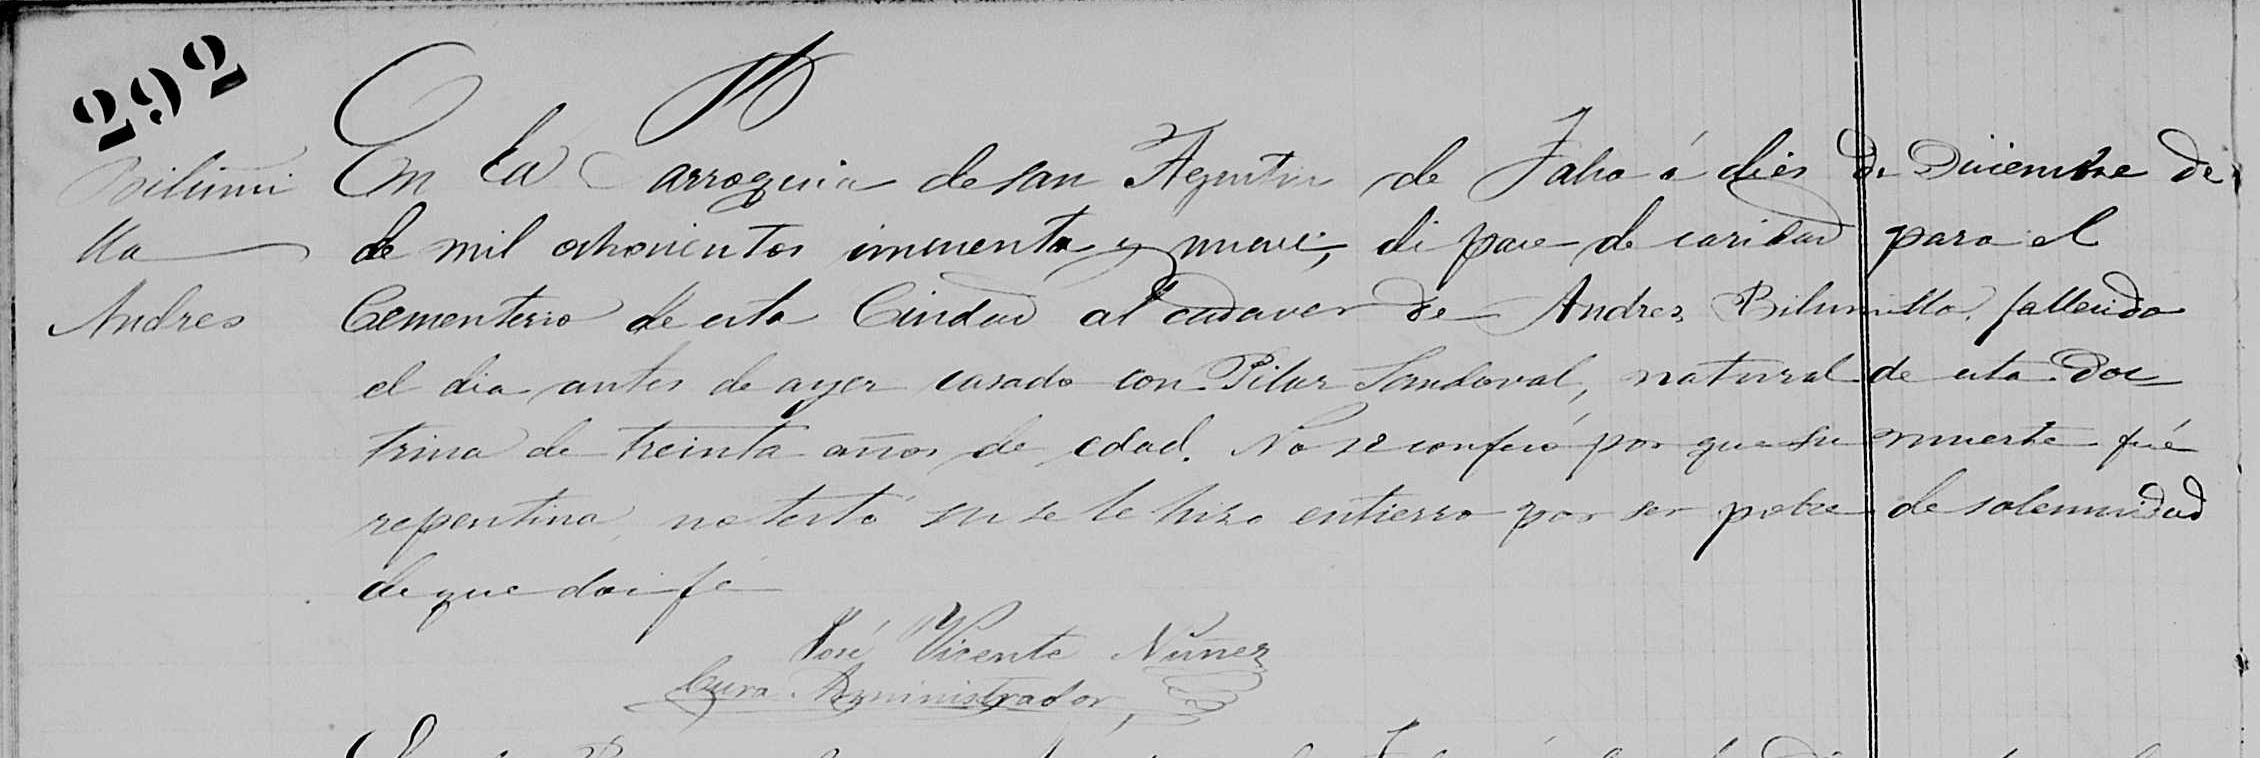 292
En la Parroquia de san Agustin de Talca á dies de Diciembre de
de mil ochocientos cincuenta y nueve, di pase de caridad para el
Cementerio de esta Ciudad al cadaver de Andres Bilumilla, fallecido
el dia antes de ayer casado con Pilar Sandoval, natural de esta Doc
trina de treinta años de edad. No se confesó por que su muerte fué
repentina, no testó ni se le hizo entierro por ser pobre de solemnidad
de que doi fé
José Vicente Nuñez
Cura Administrador,
Bilumi
lla
Andres